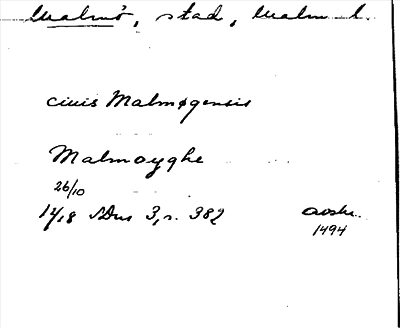 Malmö, stad, Malm l.
civis Malmøgensis
Malmøyghe
26/10
1418 SDns 3, s. 382 avskr.
1494